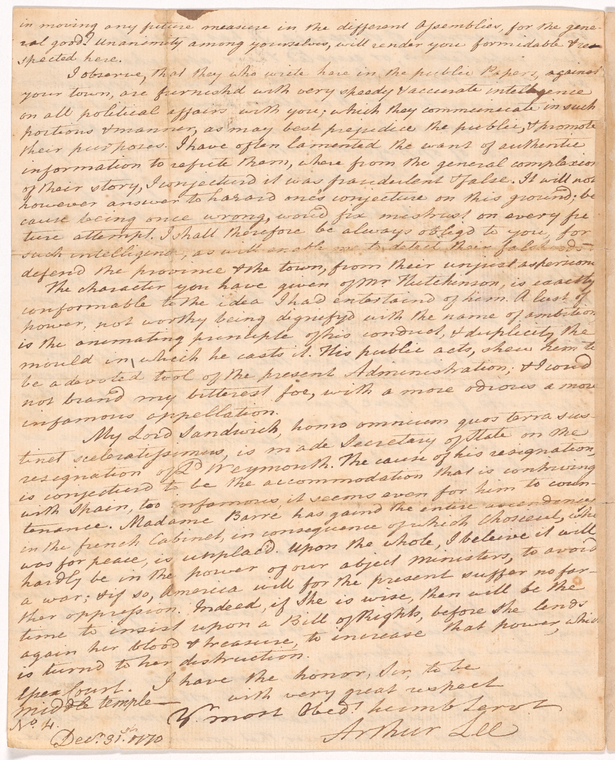 in moving any future measure in the different Assemblies, for the gene-
ral good. Unanimity among yourselves, will render you formidable & re-
spected here.
I observe, that they who write here in the public Papers, against
your town, are furnishd with very speedy & accurate intelligence
on all political affairs with you; which they communicate in such
portions & manner, as may best prejudice the public, & promote
their purposes. I have often lamented the want of authentic
information to refute them, where from the general complexion
of their story, I conjecturd it was fraudulent & false. It will not
however answer to hazard ones conjecture on this ground; be
cause being once wrong, woud fix mistrust on every fu
ture attempt. I shall therefore be always obliged to you, for
such intelligence, as will enable me to detect their falsehood
defend the province & the town, from their unjust aspersions
The character you have given of Mr Hutchinson, is exactly
conformable to the idea I had entertaind of him. A lust of
power, not worthy being dignifyd with the name of ambition
is the animating principle of his conduct, & duplicity the
mould in which he casts it. His public acts, shew him to
be a devoted tool of the present Administration; & I coud
not brand my bitterest foe, with a more odious a more
infamous appellation.
My Lord Sandwich, homo omnium quos terra sus-
tinet sceleratissimus, is made Secretary of State on the
resignation of Ld Weymouth. The cause of his resignation,
is conjecturd to be the accommodation that is contriving
with Spain, too infamous it seems even for him to coun-
tenance. Madame Barré has gaind the entire ascendence
in the french Cabinet, in consequence of which Choiseul, who
was for peace, is displacd. Upon the whole, I believe it will
hardly be in the power of our abject ministers, to avoid
a war; & if so, America will for the present suffer no far-
ther oppression. Indeed, if She is wise, then will be the
time to insist upon a Bill of Rights, before she lends
again her blood & treasure, to increase that power, which
is turnd to her destruction.
I have the honor, Sir, to be
with very great respect
Yr. most Obedt. humb Servt
Arthur Lee
Essex Court.
Middle temple
No. 4.
Decr. 31st. 1770